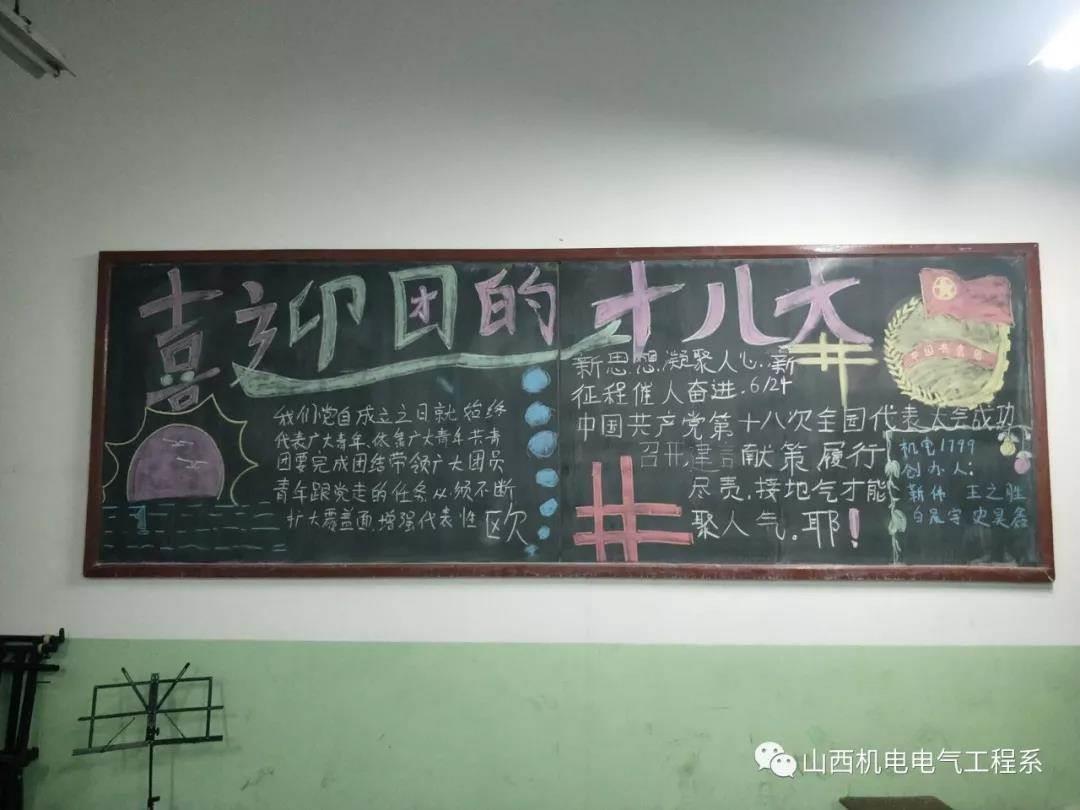 喜迎团的十八大
我们党自成立之日就始终
代表广大青年、依靠广大青年共青
团要完成团结带领广大团员
青年跟党走的任务必须不断
扩大覆盖通,增强代表性 欧
新思想.凝聚人心.新
征程催人奋进.6/24
中国共产党第十八次全国代表大会成功
召开,建言献策履行
尽责.接地气才能
聚人气.耶!
机电1799
创办人:
王之胜
山西机电电气工程系